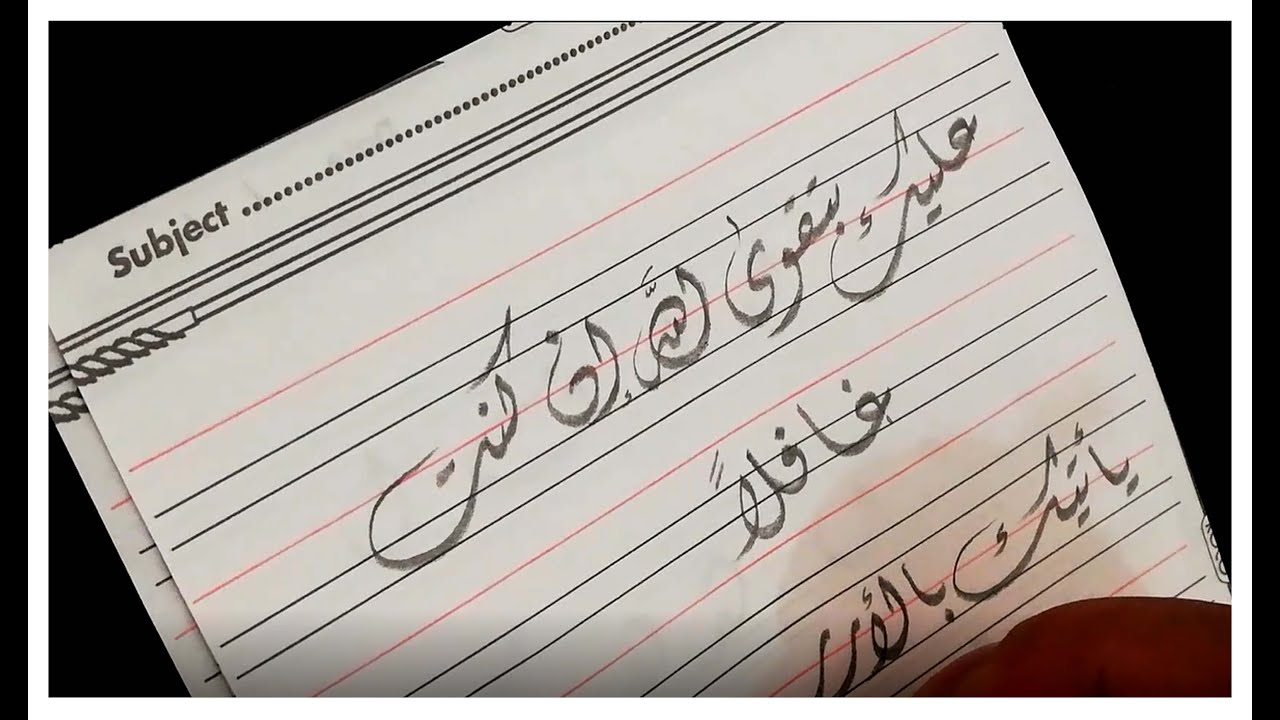 Subject ........................
عليك بتقوى اللّٰه إن كنت
غافلاً
يأتيك بالأرر